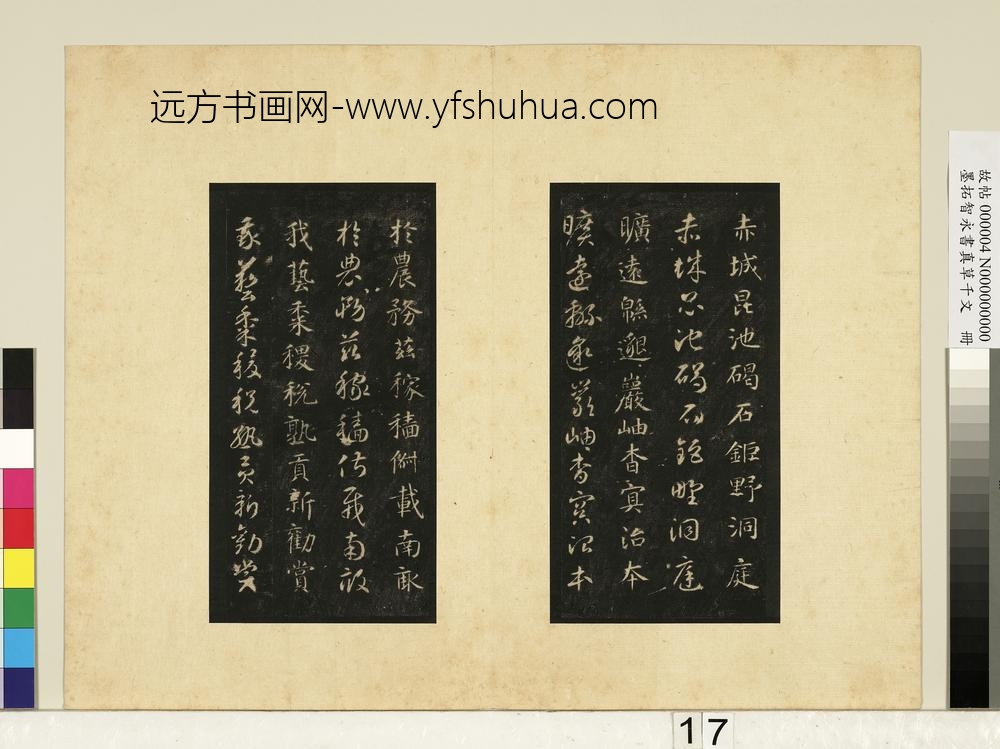 远方书画网-www.yfshuhua.com
赤城昆池碣石鉅野洞庭
赤城昆池碣石鉅野洞庭
曠遠緜邈巖岫杳冥治本
曠遠緜邈巖岫杳冥治本
於農務茲稼穡俶載南畝
於農務茲稼穡俶載南畝
我藝黍稷稅熟貢新勸賞
我藝黍稷稅熟貢新勸賞
故帖 000004 N000000000
墨拓智永書真草千文 冊
17